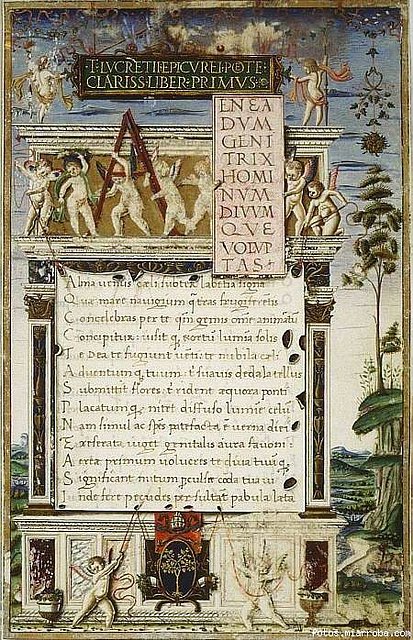 ·T·LVCRETII·EPICVREI·POTE·
CLARISS·LIBER·PRIMVS·
A
ENEA
DVM
GENI
TRIX
HOMI
NVM
DIVVM
QVE
VOLVP
TAS
Alma uenus cæli subter labētia signa
Quæ mare nauigerum q̃ tras frugiferētis
Concelebras per te qm̄ genus om̄e animātū
Concipitur uisit q; exortū lumina solis
Te Dea te fugiunt uēti te nubila cæli
Aduentum q; tuum t̄ suauis dedala tellus
Submittit flores t̄ rident æquora ponti
Placatum q; nitet diffuso lumine celū
Nam simul ac spēs patefacta ē uerna diei
Et reserata uiget genitalis aura fauoni
Aeriæ primum uolucres te diua tuū q;
Significant initum pculsæ corda tua ui
Inde feræ pecudes psultāt pabula læta
Fotos.miarroba.com